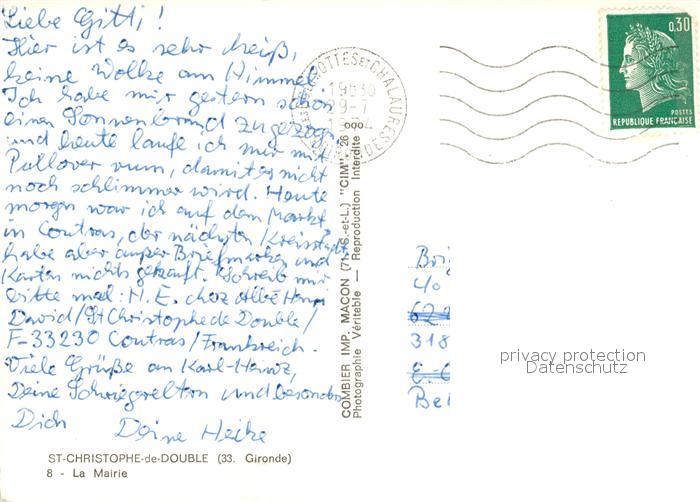 Liebe Gitti!
Hier ist es sehr heiß,
keine Wolke am Himmel.
Ich habe mir gestern schon
einen Sonnenbrand zugezogen
und heute laufe ich nur mit
Pullover rum, damit es nicht
noch schlimmer wird. Heute
morgen war ich auf dem Markt
in Coutras, der nächsten Kreisstadt,
habe aber außer Briefmarken und
Karten nichts gekauft. Schreib mir
bitte mal: H. E. chez Abbé Henri
David/St Christophe de Double/
F-33230 Coutras/Frankreich.
Viele Grüße an Karl-Heinz,
Deine Schwiegereltern und besonders
Dich Deine Heike
ST-CHRISTOPHE-de-DOUBLE (33. Gironde)
8 - La Mairie
COMBIER IMP. MACON (71. S.-et-L.) "CIM". 26
Photographie Véritable — Reproduction Interdite
ETCHALAURES
19H30
29-7
0,30
POSTES
REPUBLIQUE FRANÇAISE
40
622
318
privacy protection
Datenschutz